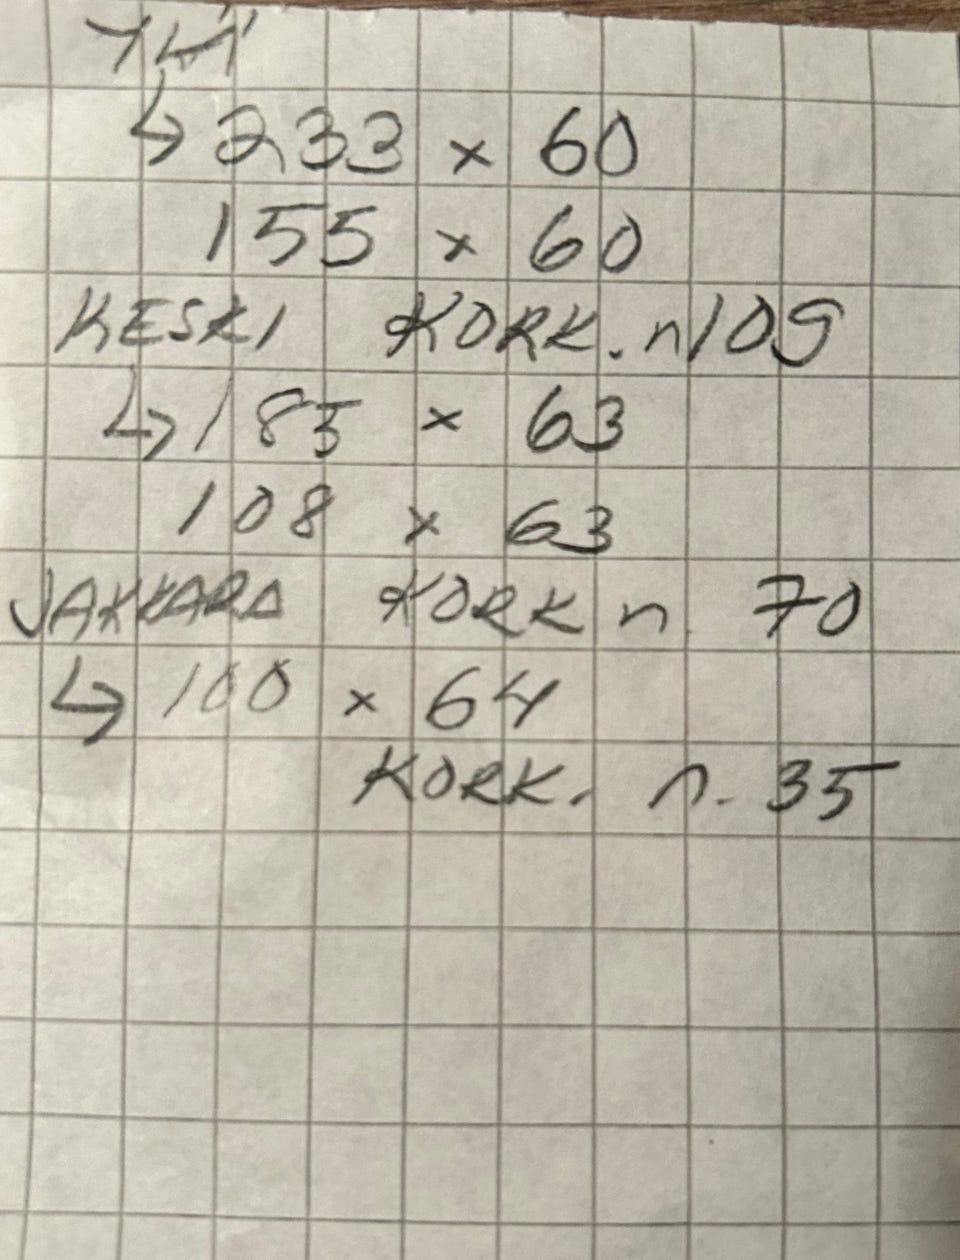 YLÄ
↳ 233 x 60
155 x 60
KESKI KORK. n 109
↳ 185 x 63
108 x 63
JAKKARA KORK n. 70
↳ 100 x 64
KORK. n. 35